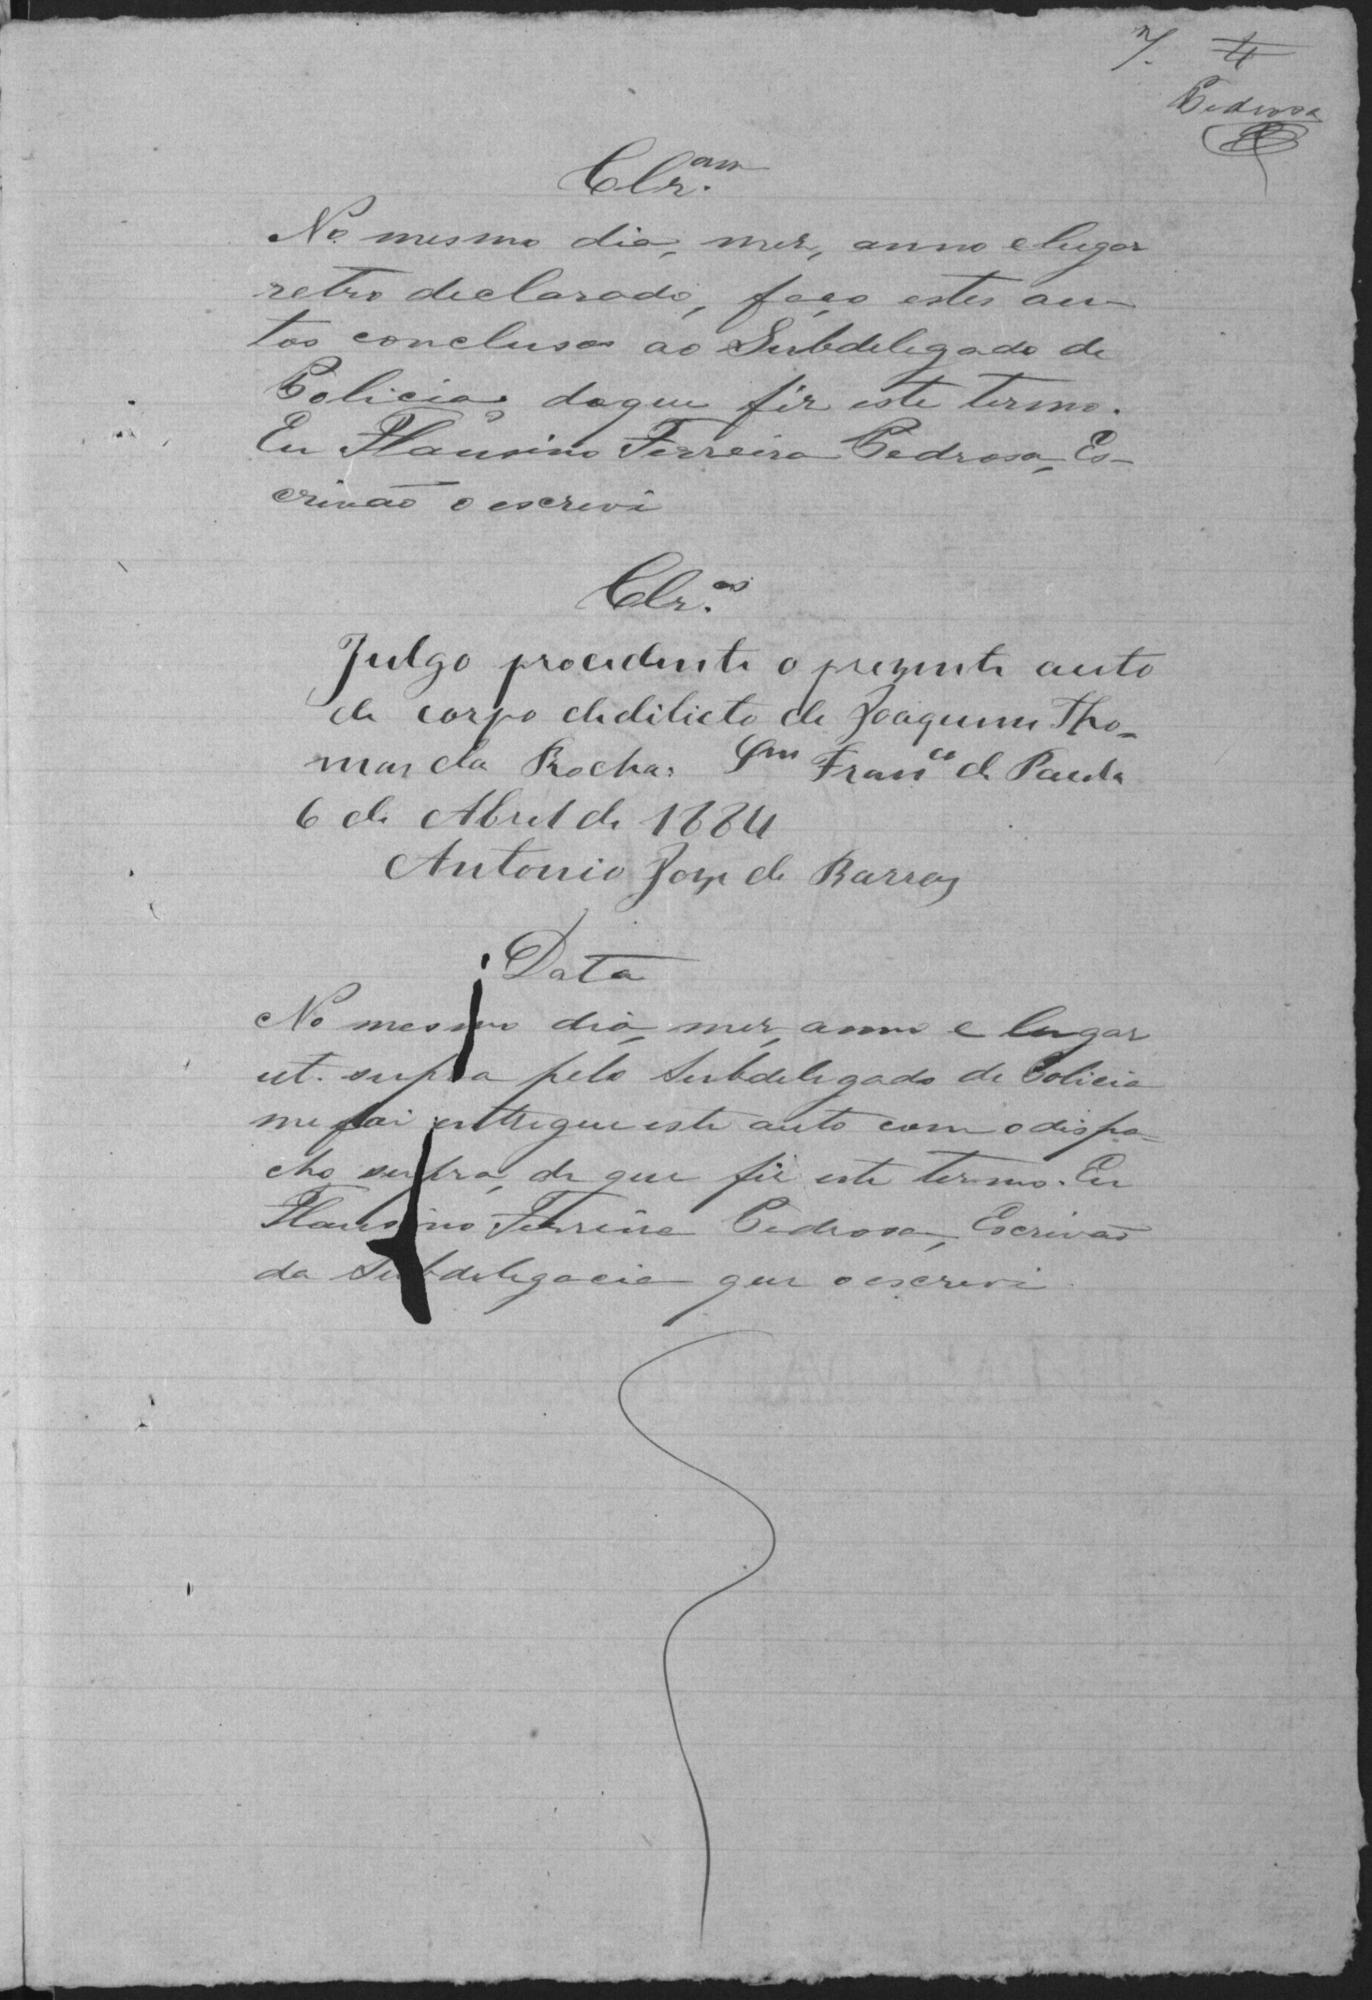 7. 4
Pedrosa
Clz.am
No mesmo dia, mez, anno e lugar
retro declarado, faço estes au-
tos conclusos ao Subdelegado de
Policia, do que fiz este termo.
Eu Flausino Ferreira Pedrosa, Es-
crivão o escrevi
Clz.os
Julgo procedente o prezente auto
de corpo dedilicto de Joaquim Tho-
maz da Rocha. Sm Franco de Paula
6 de Abril de 1884
Antonio Joze de Barros
Data
No mesmo dia, mez, anno e lugar
ut. supra pelo Subdelegado de Policia
me foi entregue este auto com o dispa-
cho supra, de que fiz este termo. Eu
Flausino Ferreira Pedrosa, Escrivão
da Subdelegacia que o escrevi